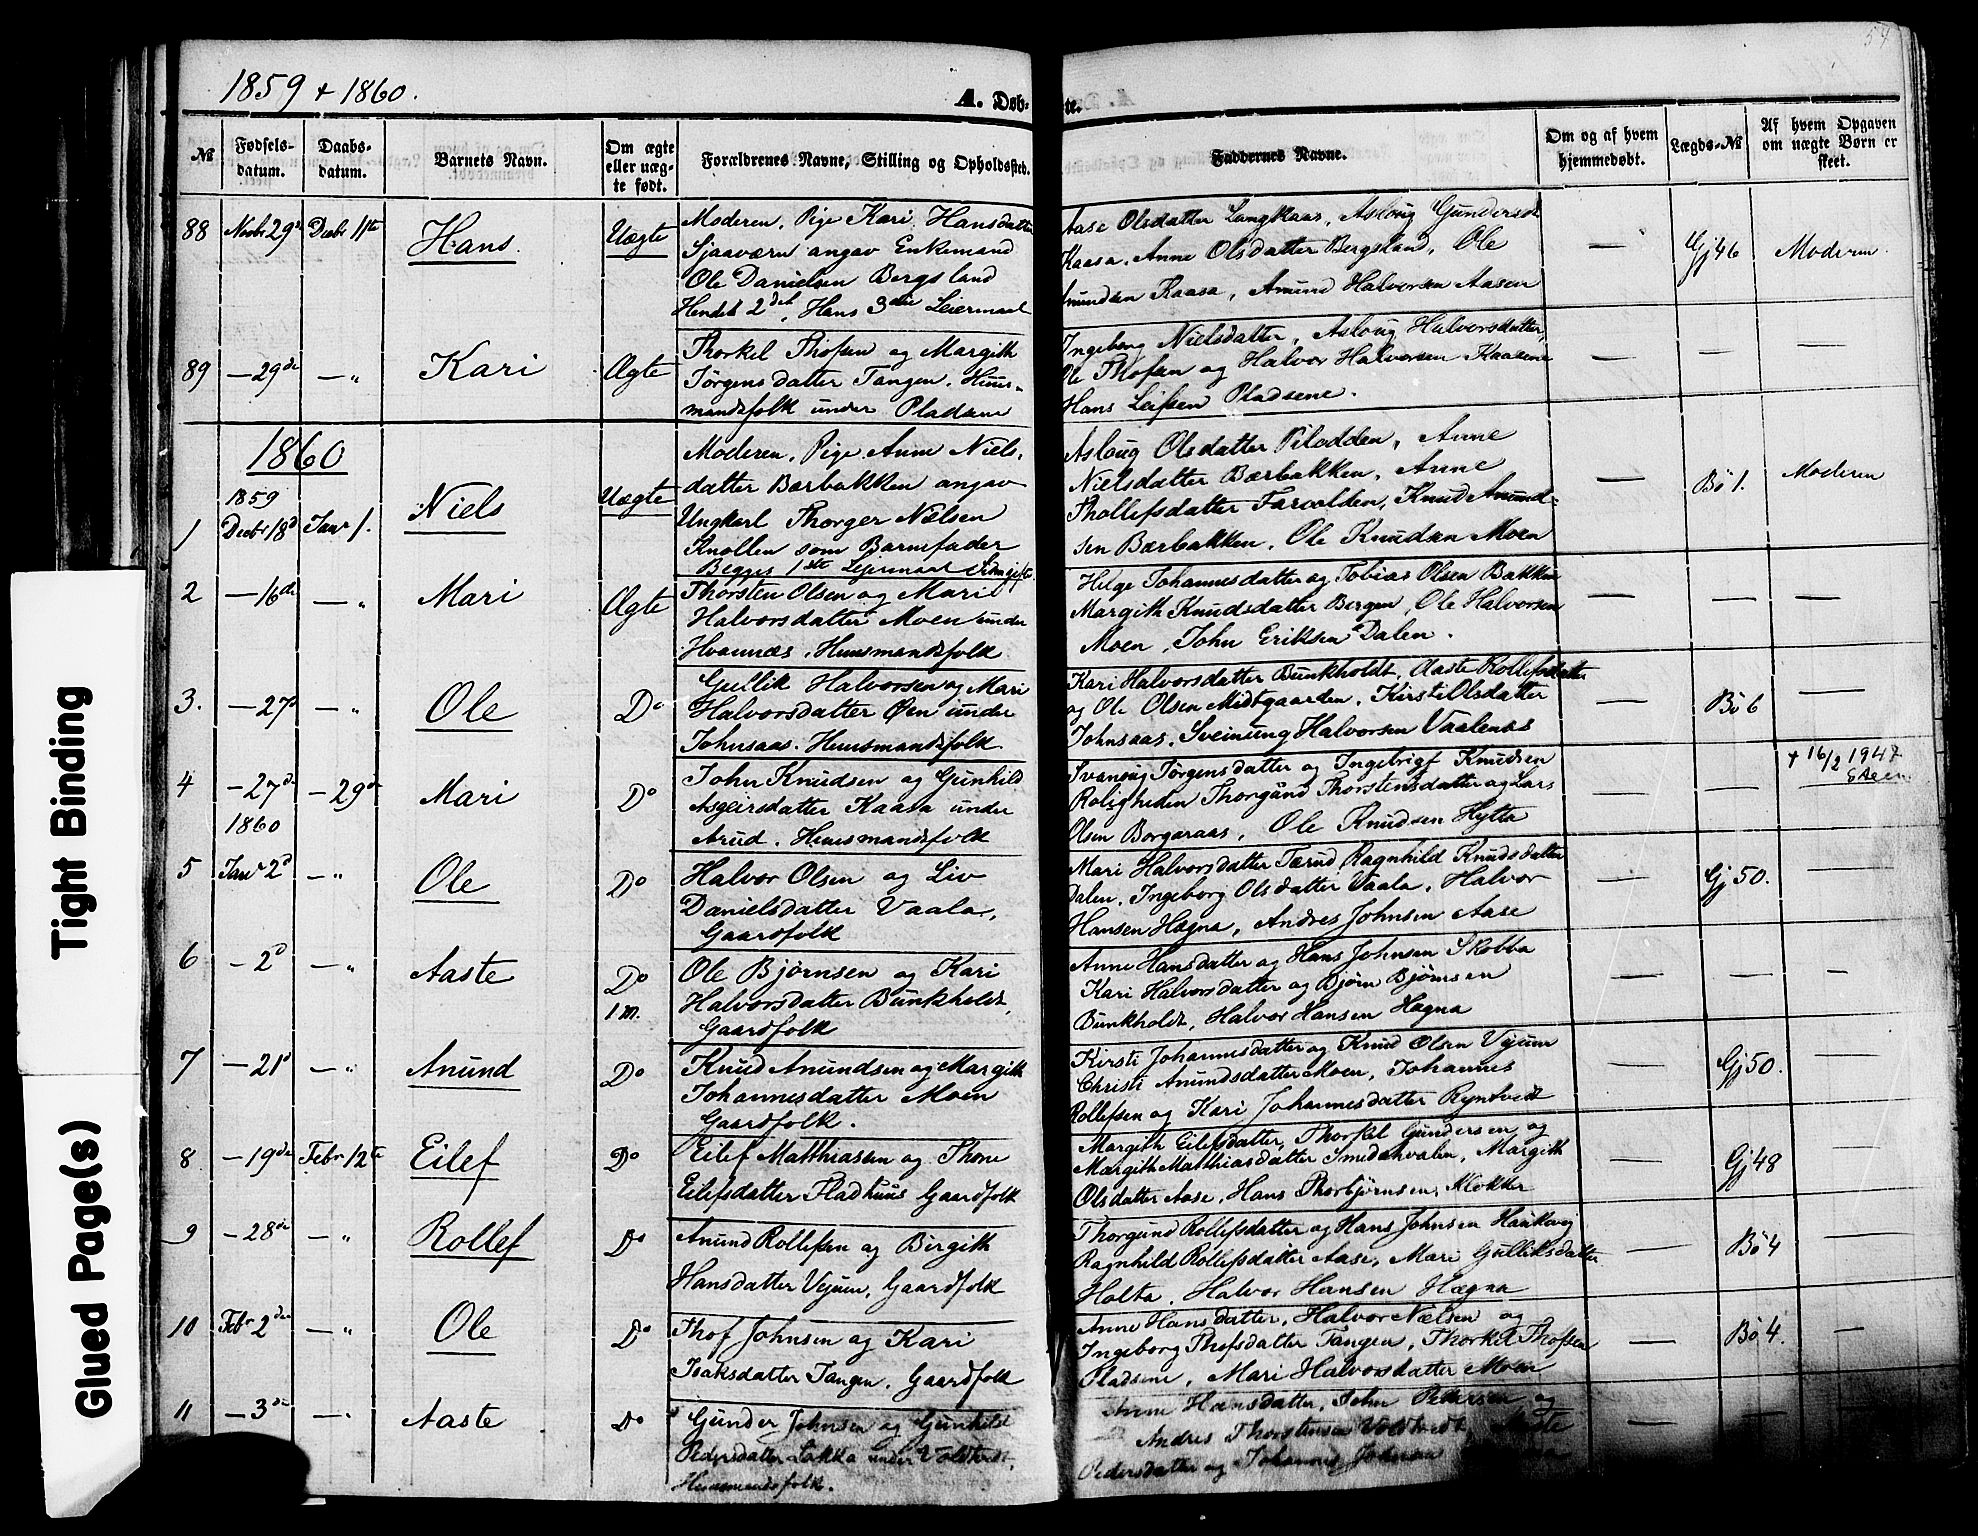 54
1859 + 1860.
A. Døb-
te.
№
Fødsels-
datum.
Daabs-
datum.
Barnets Navn.
Om ægte
eller uæg-
te født.
Forældrenes Navne, Stilling og Opholdssted.
Faddernes Navne.
Om og af hvem
hjemmedøbt.
Lægds-№
Af hvem Opgaven
om uægte Børn er
skeet.
88 Novbr 29de Decbr 11te Hans Uægte
Moderen, Pige Kari Hansdatter
Sjaaværn angav Enkemand
Ole Danielsen Bergsland
Hendes 2det, Hans 3die Leiermaal
Aase Olsdatter Langkaas, Asloug Gundersdt
Kaasa, Anne Olsdatter Bergsland, Ole
Anundsen Kaasa, Anund Halvorsen Aasen
— Gj 46 Moderen
89 — 29de — „ Kari Ægte
Thorkel Thofsen og Margith
Jørgensdatter Tangen, Huus-
mandsfolk under Pladsene
Ingeborg Nielsdatter, Asloug Halvorsdatter,
Ole Thofsen og Halvor Halvorsen Kaasene
Hans Leifsen Pladsene.
— — —
1860
1859
1 Decbr 18de Janr 1. Niels Uægte
Moderen, Pige Anne Niels-
datter Bærbakken angav
Ungkarl Thorger Nielsen
Knollen som Barnefader
Begges 1ste Lejermaal
Asloug Olsdatter Pilodden, Anne
Nielsdatter Bærbakken, Anne
Thollefsdatter Farvolden, Knud Anund-
sen Bærbakken, Ole Knudsen Moen
— Bø 1. Moderen
2 — 16de — „ Mari Ægte
Thorsten Olsen og Mari
Halvorsdatter Moen under
Hvannæs, Huusmandsfolk
Helge Johannesdatter og Tobias Olsen Bakken
Margith Knudsdatter Bergen, Ole Halvorsen
Moen, John Eriksen Dalen.
— — —
3. — 27de — „ Ole Do
Gullik Halvorsen og Mari
Halvorsdatter Øen under
Johnsaas. Huusmandsfolk
Kari Halvorsdatter Bunkholdt, Aaste Rollefsdatter
og Ole Olsen Midtgaarden, Kirsti Olsdatter
Johnsaas, Sveinung Halvorsen Vaalenæs
— Bø 6 —
4 — 27de — 29de Mari Do
John Knudsen og Gunhild
Asgeirsdatter Kaasa under
Arud. Huusmandsfolk
Svanoug Jørgensdatter og Ingebrigt Knudsen
Roligheden Thorgund Thorstensdatter og Lars
Olsen Borgaraas, Ole Knudsen Hytta
— — —
+ 16/2 1947
1860
5 Janr 2d — „ Ole Do
Halvor Olsen og Liv
Danielsdatter Vaala,
Gaardfolk
Mari Halvorsdatter Tærud Ragnhild Knudsdatter
Dalen, Ingeborg Olsdatter Vaala, Halvor
Hansen Hægna, Andres Johnsen Aase
— Gj 50. —
6 — 2d — „ Aaste Do
1 m.
Ole Bjørnsen og Kari
Halvorsdatter Bunkholdt,
Gaardfolk
Anne Hansdatter og Hans Johnsen Skobba
Kari Halvorsdatter og Bjørn Bjørnsen
Bunkholdt, Halvor Hansen Hægna
— — —
7 — 21d — „ Anund Do
Knud Anundsen og Margith
Johannesdatter Moen
Gaardfolk.
Kirsti Johannesdatter og Knud Olsen Vejum
Christi Anundsdatter Moen, Johannes
Rollefsen og Kari Johannesdatter Ryntveit
— Gj 50. —
8 — 19de Febr 12te Eilef Do
Eilef Matthiasen og Thone
Eilefsdatter Fladhuus Gaardfolk
Margith Eilefsdatter, Thorkel Gundersen og
Margith Matthiasdatter Smedshvalen, Margith
Olsdatter Aase, Hans Thorbjørnsen, Klokker
— Gj 48 —
9 — 28de — „ Rollef Do
Anund Rollefsen og Birgith
Hansdatter Vejum, Gaardfolk
Thorgund Rollefsdatter og Hans Johnsen Haukvig
Ragnhild Rollefsdatter Aase, Mari Gulliksdatter
Holta. Halvor Hansen Hægna
— Bø 4 —
10 Febr 2den — „ Ole Do
Thof Johnsen og Kari
Isaksdatter Tangen, Gaardfolk
Anne Hansdatter, Halvor Nielsen og
Ingeborg Thofsdatter Tangen, Thorkel Thofsen
Pladsene, Mari Halvorsdatter Moen
— Bø 4. —
11 — 3die — „ Aaste Do
Gunder Johnsen og Gunhild
Pedersdatter Løkka under Voldtvedt,
Huusmandsfolk.
Anne Hansdatter, John Pedersen og
Andres Thorstensen Voldtvedt, Aaste
Pedersdatter og Johannes Johnsen
— — —
Tight Binding
Glued Page(s)